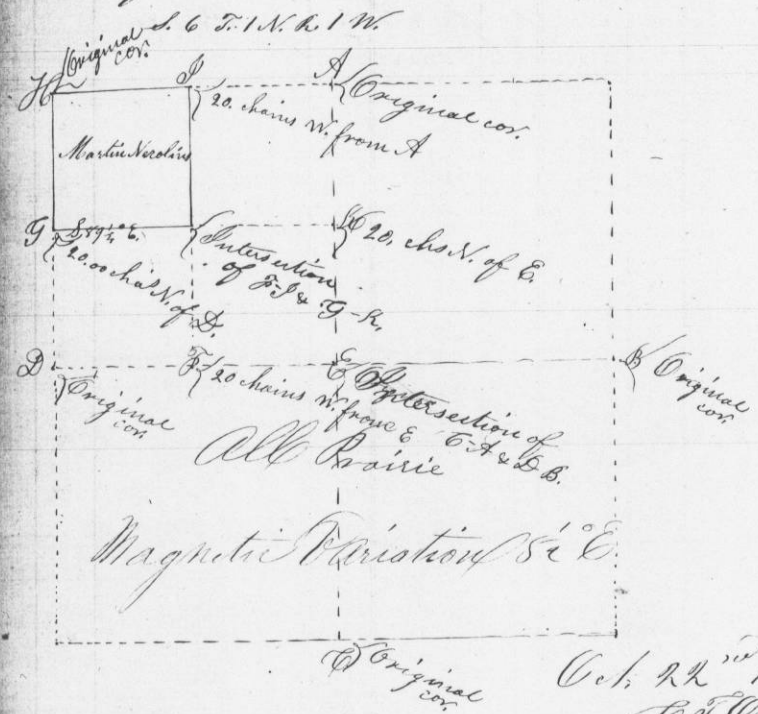 S. 6 T. 1 N. R 1 W.
H Original cor.
I
20. chains W. from A
A
Original cor.
Martin
G
S 89 1/4° E.
20.00 chs N. of D.
Intersection
of F-I & G-K.
K
20. chs N. of E.
D
Original
cor.
F
20 chains W. from E
E
Intersection of
C-A & D B.
B
Original
cor.
All Prairie
Magnetic Variation 8 1/2° E.
C
Original
cor.
Oct. 22